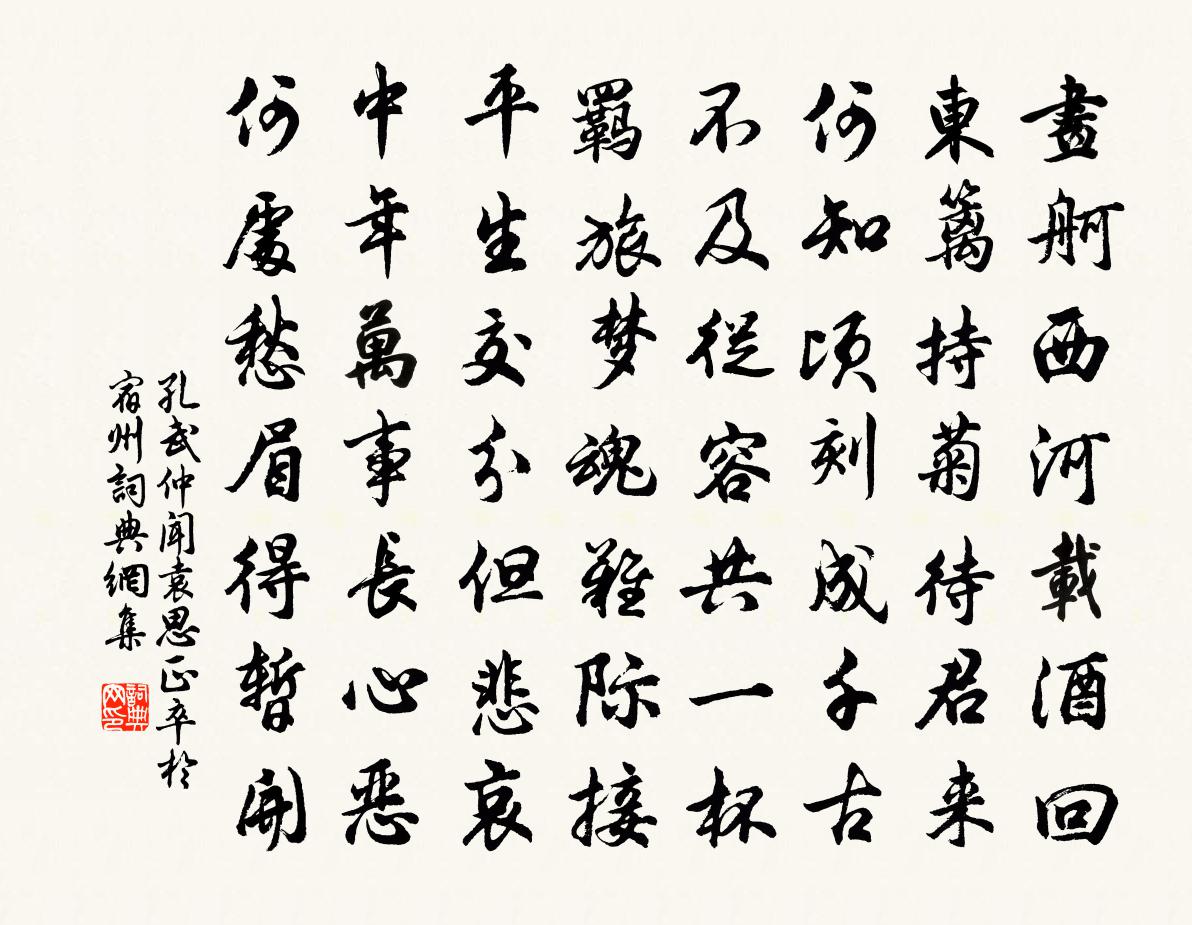 畫舸西河載酒回
東籬持菊待君来
何知頃刻成千古
不及従容共一杯
羈旅梦魂難际接
平生交分但悲哀
中年萬事長心恶
何處愁眉得暫開
孔武仲聞袁思正卒於
宿州詞典網集
詞典网印